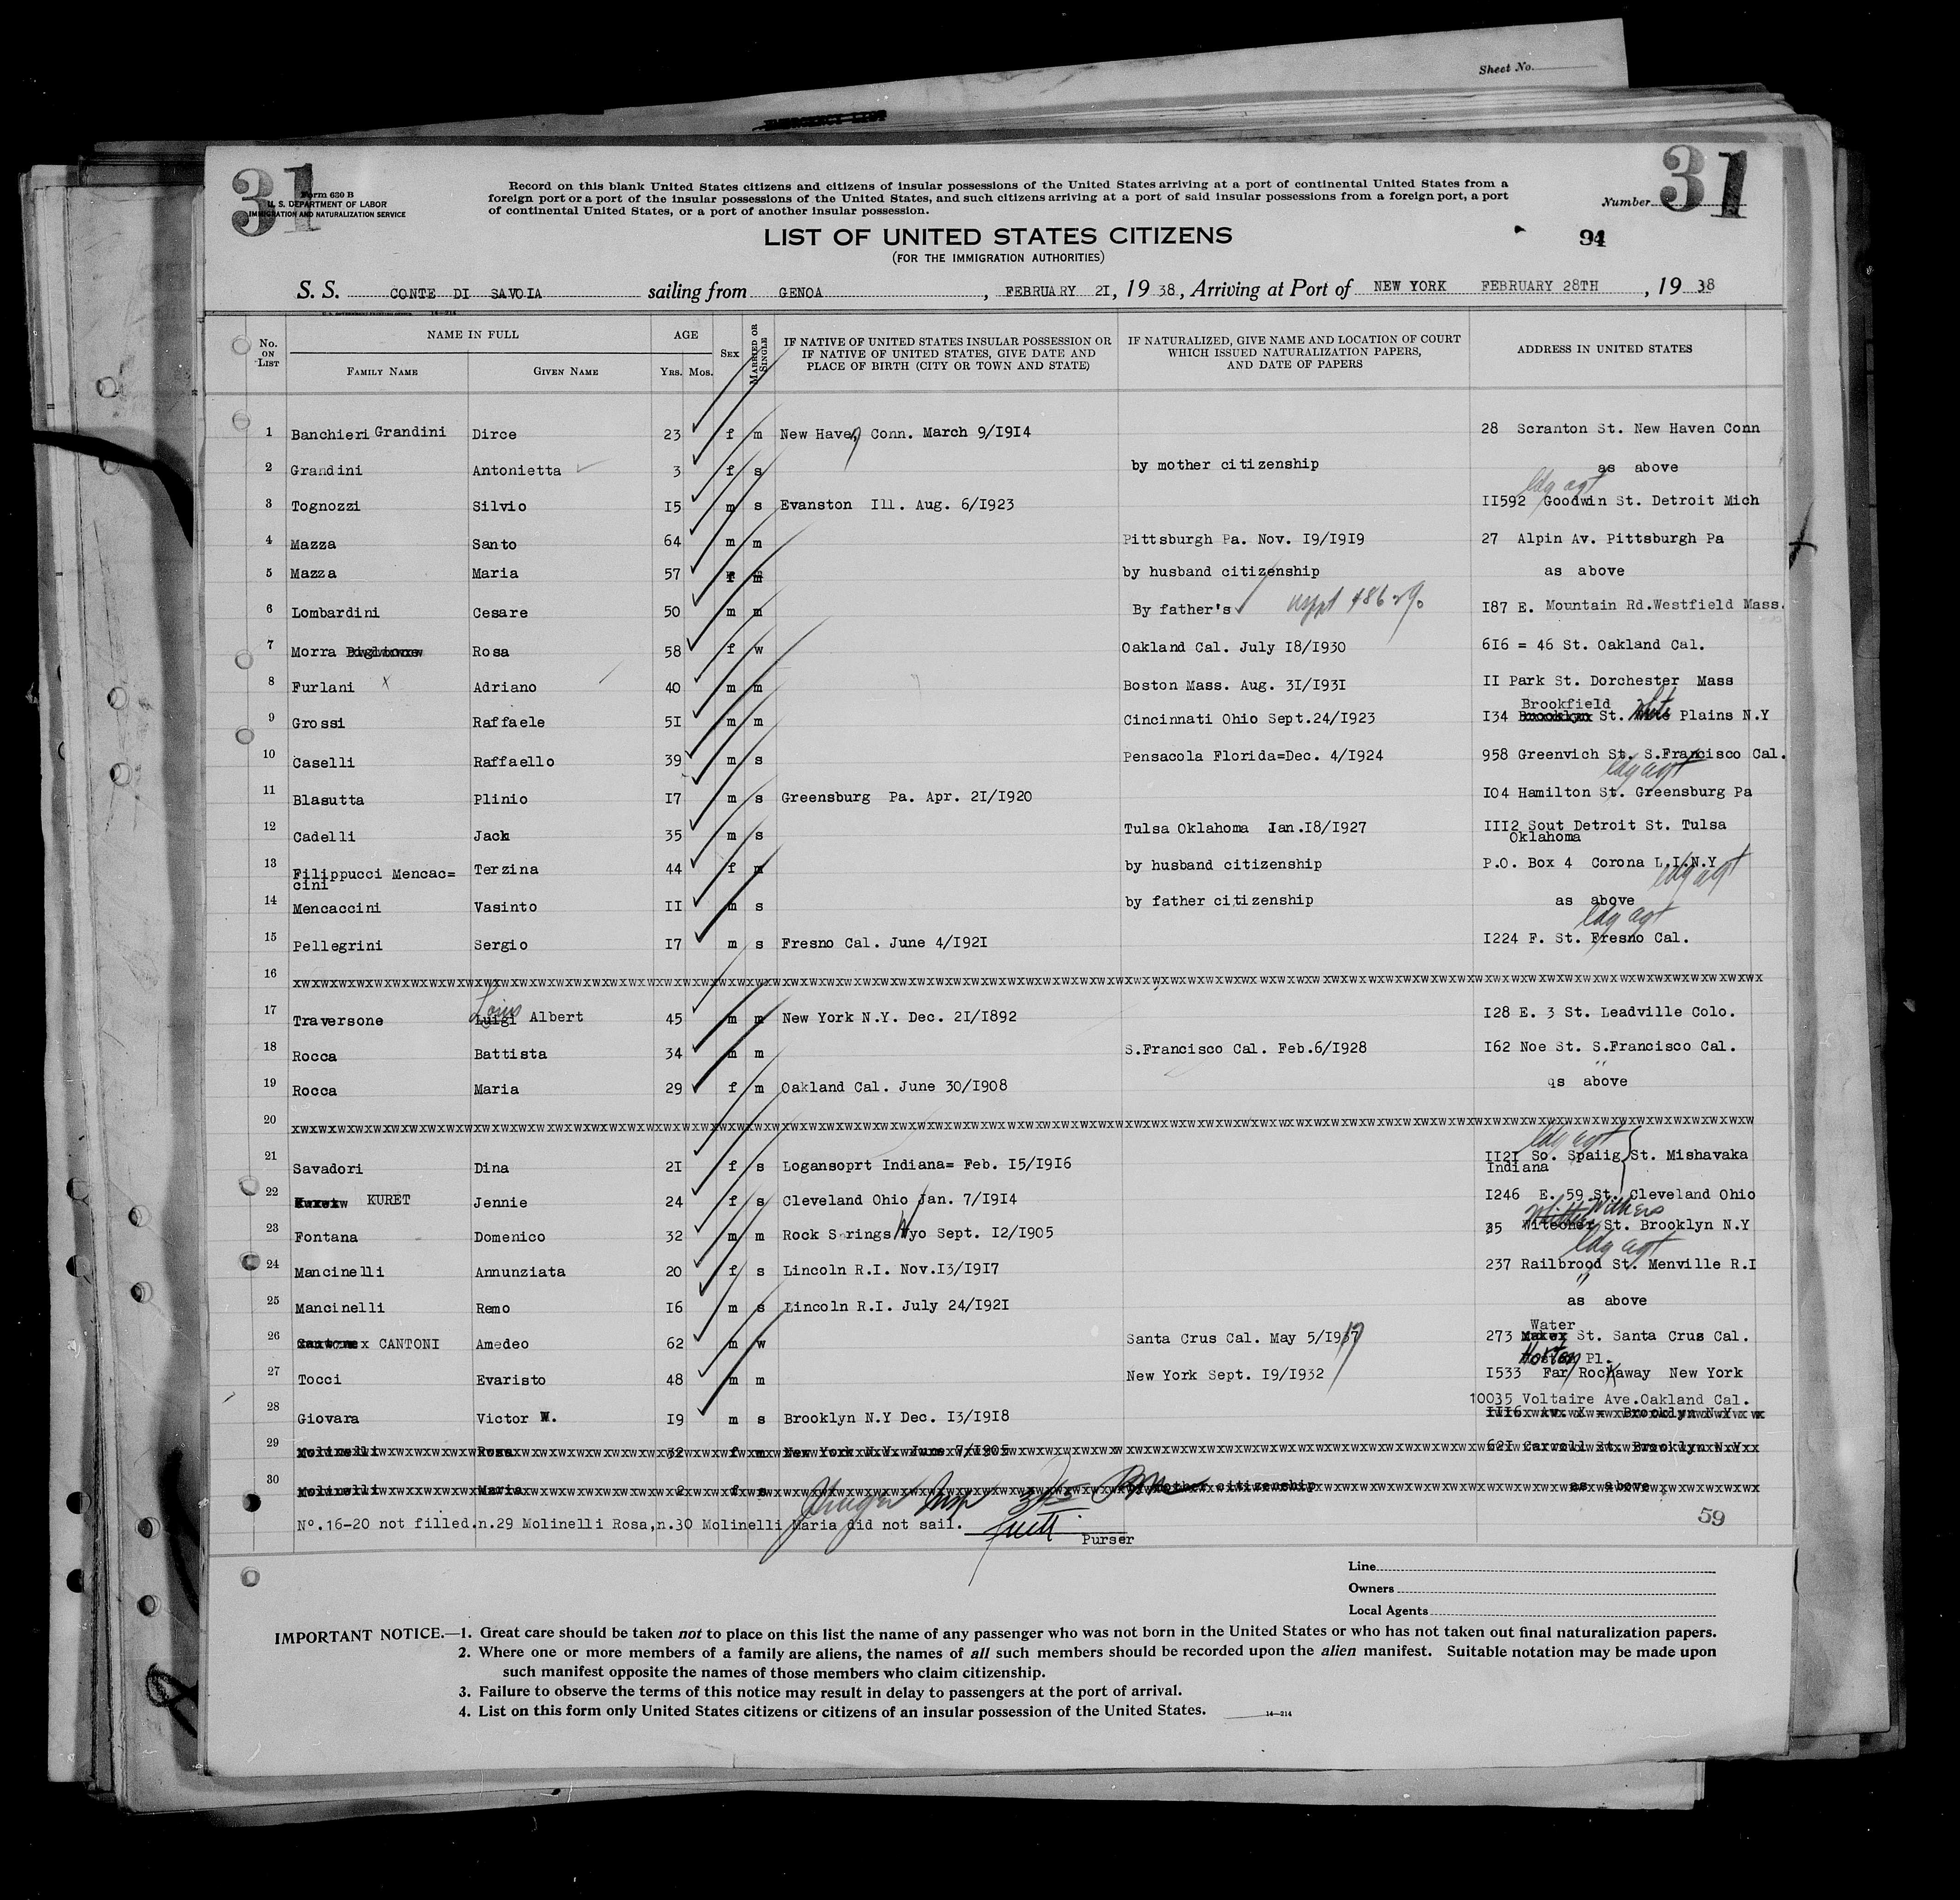 Sheet No.
EMERGENCY LIST
31
31
Form 630 B
U. S. DEPARTMENT OF LABOR
IMMIGRATION AND NATURALIZATION SERVICE
Record on this blank United States citizens and citizens of insular possessions of the United States arriving at a port of continental United States from a
foreign port or a port of the insular possessions of the United States, and such citizens arriving at a port of said insular possessions from a foreign port, a port
of continental United States, or a port of another insular possession.
Number
94
LIST OF UNITED STATES CITIZENS
(FOR THE IMMIGRATION AUTHORITIES)
S. S. CONTE DI SAVOIA sailing from GENOA , FEBRUARY 2I, 19 38, Arriving at Port of NEW YORK FEBRUARY 28TH , 19 38
No. ON LIST NAME IN FULL FAMILY NAME GIVEN NAME AGE YRS. MOS. SEX MARRIED OR SINGLE IF NATIVE OF UNITED STATES INSULAR POSSESSION OR IF NATIVE OF UNITED STATES, GIVE DATE AND PLACE OF BIRTH (CITY OR TOWN AND STATE) IF NATURALIZED, GIVE NAME AND LOCATION OF COURT WHICH ISSUED NATURALIZATION PAPERS, AND DATE OF PAPERS ADDRESS IN UNITED STATES
1 Banchieri Grandini Dirce 23 f m New Haven Conn. March 9/I9I4 28 Scranton St. New Haven Conn
2 Grandini Antonietta 3 f s by mother citizenship as above
ldg agt
3 Tognozzi Silvio I5 m s Evanston Ill. Aug. 6/I923 II592 Goodwin St. Detroit Mich
4 Mazza Santo 64 m m Pittsburgh Pa. Nov. I9/I9I9 27 Alpin Av. Pittsburgh Pa
5 Mazza Maria 57 f m by husband citizenship as above
6 Lombardini Cesare 50 m m By father's I87 E. Mountain Rd.Westfield Mass.
7 Morra Rosa 58 f w Oakland Cal. July I8/I930 6I6 = 46 St. Oakland Cal.
8 Furlani x Adriano 40 m m Boston Mass. Aug. 3I/I93I II Park St. Dorchester Mass
Brookfield
9 Grossi Raffaele 5I m m Cincinnati Ohio Sept.24/I923 I34 Brooklyn St. White Plains N.Y
10 Caselli Raffaello 39 m s Pensacola Florida=Dec. 4/I924 958 Greenvich St. S.Francisco Cal.
ldg agt
11 Blasutta Plinio I7 m s Greensburg Pa. Apr. 2I/I920 I04 Hamilton St. Greensburg Pa
12 Cadelli Jack 35 m s Tulsa Oklahoma Jan.I8/I927 III2 Sout Detroit St. Tulsa
Oklahoma
13 Filippucci Mencac= Terzina 44 f m by husband citizenship P.O. Box 4 Corona L.I.N.Y
cini ldg agt
14 Mencaccini Vasinto II m s by father citizenship as above
ldg agt
15 Pellegrini Sergio I7 m s Fresno Cal. June 4/I92I I224 F. St. Fresno Cal.
16
Louis
17 Traversone Luigi Albert 45 m m New York N.Y. Dec. 2I/I892 I28 E. 3 St. Leadville Colo.
18 Rocca Battista 34 m m S.Francisco Cal. Feb.6/I928 I62 Noe St. S.Francisco Cal.
19 Rocca Maria 29 f m Oakland Cal. June 30/I908 qs above
20
ldg agt
21 Savadori Dina 2I f s Logansoprt Indiana= Feb. I5/I9I6 II2I So. Spaiig St. Mishavaka
Indiana
22 KURET Jennie 24 f s Cleveland Ohio Jan. 7/I9I4 I246 E. 59 St. Cleveland Ohio
Withers
23 Fontana Domenico 32 m m Rock S rings Wyo Sept. I2/I905 35 St. Brooklyn N.Y
ldg agt
24 Mancinelli Annunziata 20 f s Lincoln R.I. Nov.I3/I9I7 237 Railbrood St. Menville R.I
"
25 Mancinelli Remo I6 m s Lincoln R.I. July 24/I92I as above
Water
26 CANTONI Amedeo 62 m w Santa Crus Cal. May 5/I937 17 273 St. Santa Crus Cal.
Horton Pl.
27 Tocci Evaristo 48 m m New York Sept. I9/I932 I533 Far Rockaway New York
10035 Voltaire Ave.Oakland Cal.
28 Giovara Victor W. I9 m s Brooklyn N.Y Dec. I3/I9I8 III6 Av. X Brooklyn N.Y
29 Molinelli Rosa 32 f m New York N.Y. June 7/I905 62I Carroll St. Brooklyn N.Y
30 Molinelli Maria 2 f s by mother citizenship as above
Nº.I6-20 not filled.n.29 Molinelli Rosa,n.30 Molinelli Maria did not sail.
Purser
59
Line
Owners
Local Agents
IMPORTANT NOTICE.—1. Great care should be taken not to place on this list the name of any passenger who was not born in the United States or who has not taken out final naturalization papers.
2. Where one or more members of a family are aliens, the names of all such members should be recorded upon the alien manifest. Suitable notation may be made upon
such manifest opposite the names of those members who claim citizenship.
3. Failure to observe the terms of this notice may result in delay to passengers at the port of arrival.
4. List on this form only United States citizens or citizens of an insular possession of the United States.
14—214